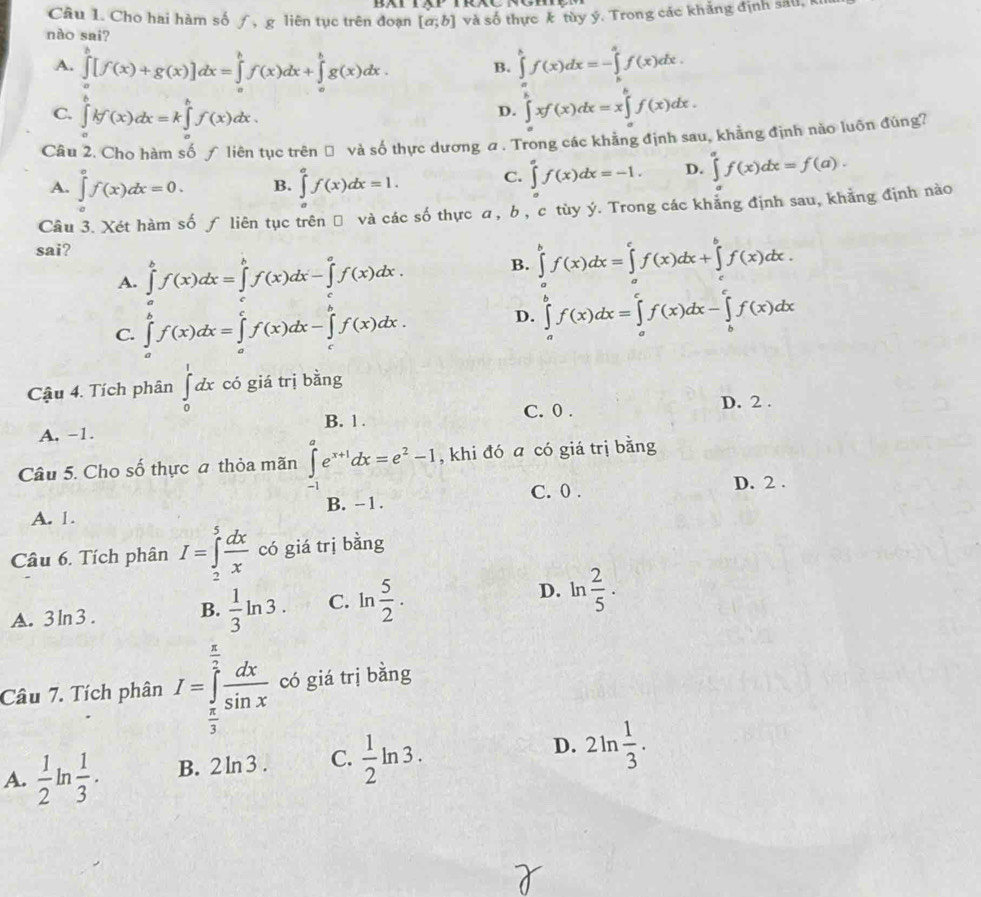 BÀI TẬP TRẮC NGHIỆM
Câu 1. Cho hai hàm số f, g liên tục trên đoạn [a;b] và số thực k tùy ý. Trong các khẳng định sau,
nào sai?
A. \int_a^b [f(x)+g(x)]dx = \int_a^b f(x)dx + \int_a^b g(x)dx. B. \int_a^b f(x)dx = -\int_b^a f(x)dx.
C. \int_a^b kf(x)dx = k\int_a^b f(x)dx. D. \int_a^b xf(x)dx = x\int_a^b f(x)dx.
Câu 2. Cho hàm số f liên tục trên □ và số thực dương a. Trong các khẳng định sau, khẳng định nào luôn đúng?
A. \int_a^a f(x)dx = 0. B. \int_a^a f(x)dx = 1. C. \int_a^a f(x)dx = -1. D. \int_a^a f(x)dx = f(a).
Câu 3. Xét hàm số f liên tục trên □ và các số thực a, b, c tùy ý. Trong các khẳng định sau, khẳng định nào
sai?
A. \int_a^b f(x)dx = \int_c^b f(x)dx - \int_c^a f(x)dx. B. \int_a^b f(x)dx = \int_a^c f(x)dx + \int_c^b f(x)dx.
C. \int_a^b f(x)dx = \int_a^c f(x)dx - \int_c^b f(x)dx. D. \int_a^b f(x)dx = \int_a^c f(x)dx - \int_b^c f(x)dx
Câu 4. Tích phân \int_0^1 dx có giá trị bằng
A. −1. B. 1. C. 0. D. 2.
Câu 5. Cho số thực a thỏa mãn \int_{-1}^a e^{x+1}dx = e^2 − 1, khi đó a có giá trị bằng
A. 1. B. −1. C. 0. D. 2.
Câu 6. Tích phân I = \int_2^5 \frac{dx}{x} có giá trị bằng
A. 3 ln 3. B. \frac{1}{3} ln 3. C. ln \frac{5}{2}. D. ln \frac{2}{5}.
Câu 7. Tích phân I = \int_{\frac{π}{3}}^{\frac{π}{2}} \frac{dx}{sin x} có giá trị bằng
A. \frac{1}{2} ln \frac{1}{3}. B. 2 ln 3. C. \frac{1}{2} ln 3. D. 2 ln \frac{1}{3}.